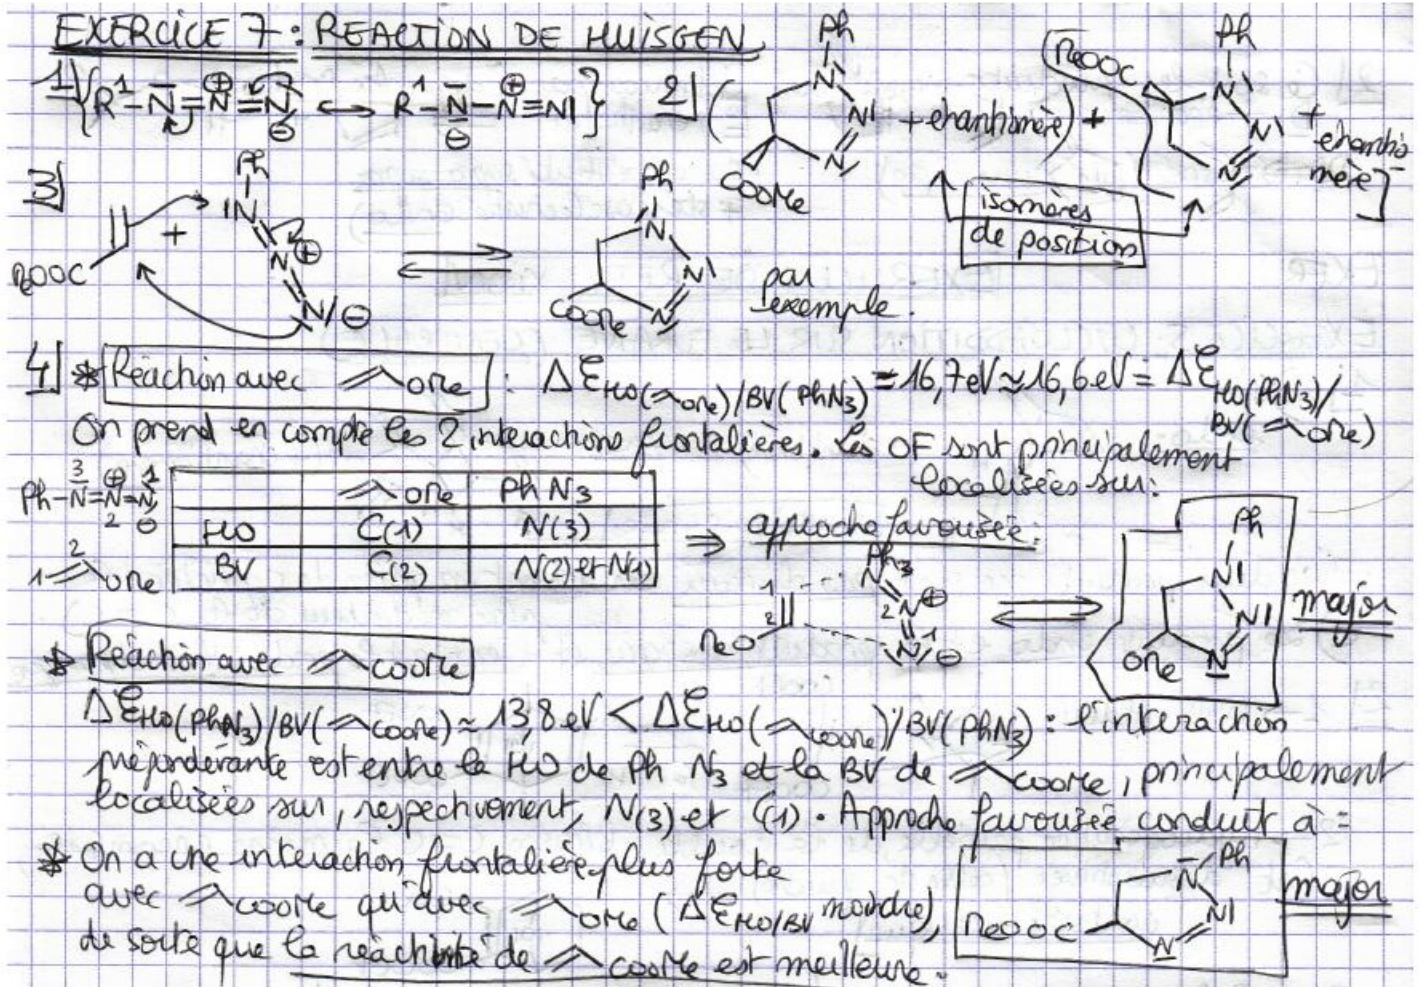 EXERCICE 7 : REACTION DE HUISGEN
1) { R¹-N=N⊕=N⊖ ↔ R¹-N⊖-N⊕≡N| }
2) [( Ph N N N COOMe + énantiomère) + ( MeOOC Ph N N N + énantiomère ]
isomères de position
3) MeOOC + Ph N N⊕ N⊖ ⇌ Ph N N N COOMe par exemple.
4) * Réaction avec OMe : ΔE HO(OMe)/BV(PhN₃) = 16,7eV ≈ 16,6 eV = ΔE HO(PhN₃)/BV(OMe)
On prend en compte les 2 interactions frontalières. Les OF sont principalement
localisées sur :
Ph-N=N=N 3 2 1 ⊕ ⊖
1 2 OMe
OMe PhN₃
HO C(1) N(3)
BV C(2) N(2) et N(1)
⇒ approche favorisée :
1 2 MeO Ph N 3 2 N⊕ N 1 ⊖ ⇌ Ph N N N OMe major
* Réaction avec COOMe
ΔE HO(PhN₃)/BV(COOMe) ≈ 13,8 eV < ΔE HO(COOMe)/BV(PhN₃) : l'interaction
prépondérante est entre la HO de Ph N₃ et la BV de COOMe, principalement
localisées sur, respectivement, N(3) et C(1). Approche favorisée conduit à :
* On a une interaction frontalière plus forte
avec COOMe qu'avec OMe (ΔE HO/BV moindre),
de sorte que la réactivité de COOMe est meilleure.
MeOOC N Ph N N major